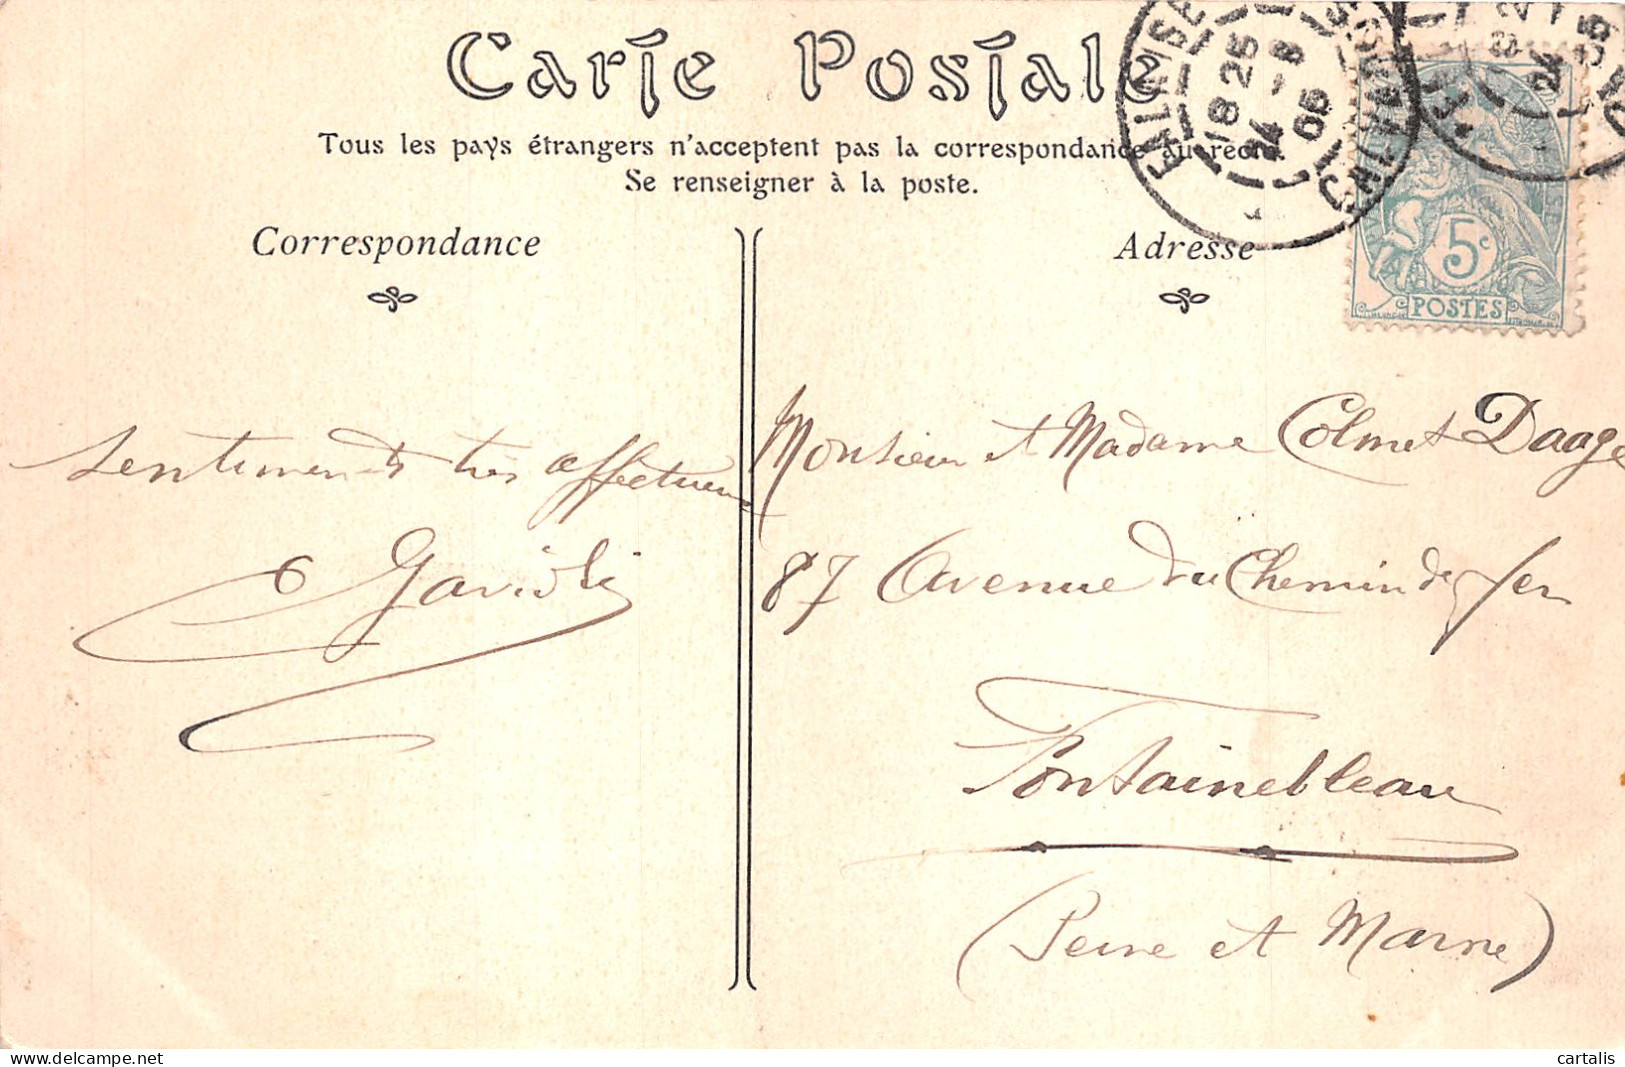 Carte Postale
Tous les pays étrangers n'acceptent pas la correspondance au recto.
Se renseigner à la poste.
Correspondance
Adresse
FALAISE
CALVADOS
18 25
24 -8
05
5c
POSTES
sentiments très affectueux
Gavioli
Monsieur et Madame Colmet Daage
87 Avenue du Chemin de fer
Fontainebleau
(Seine et Marne)
cartalis